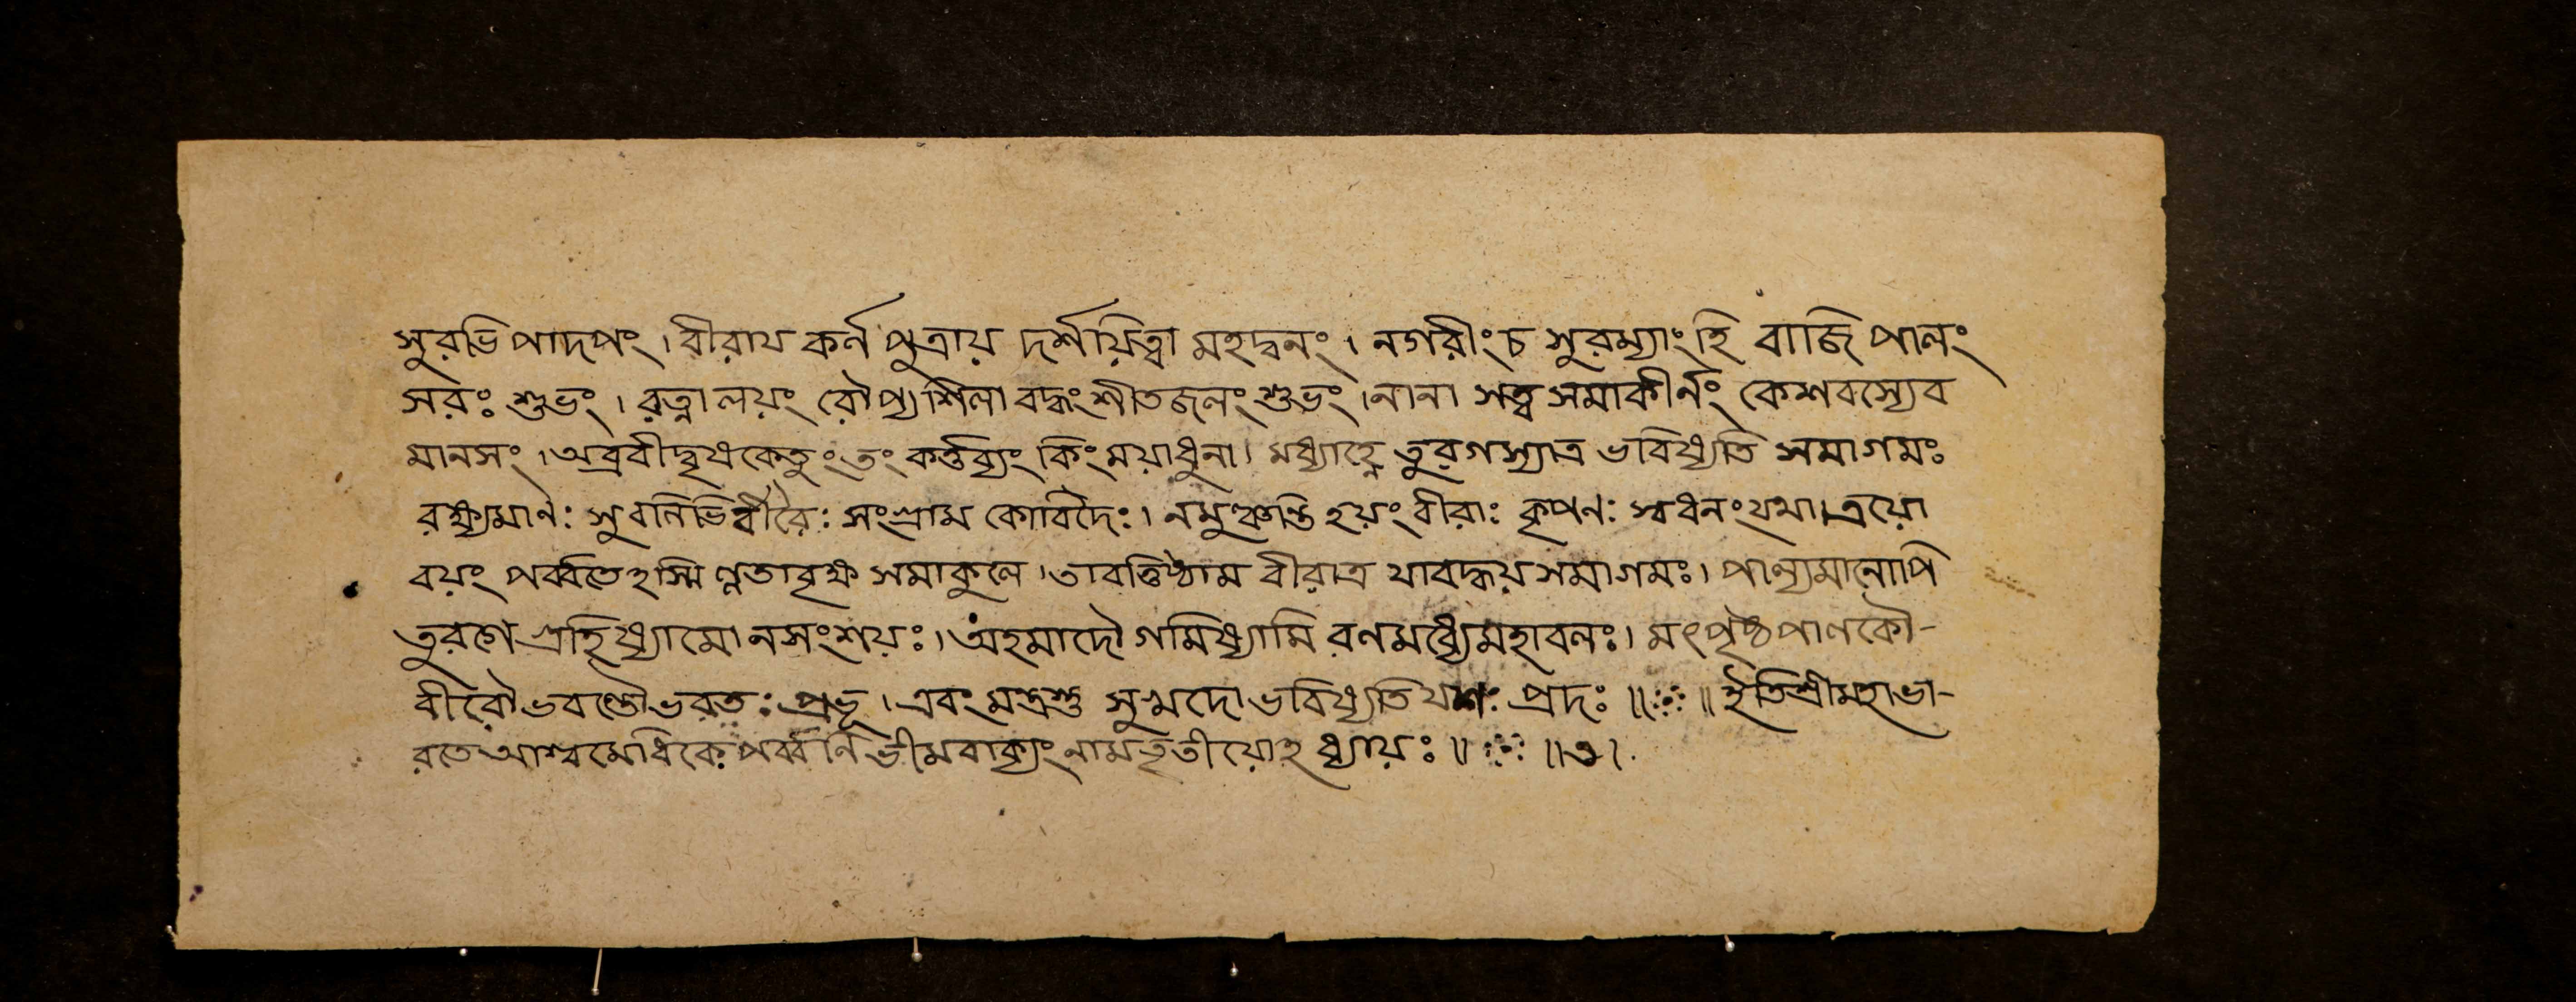 সুরভি পাদপং । বীরায কর্ন পুত্রায় দর্শয়িত্বা মহদ্বনং । নগরীংচ সুরম্যাংহি বাজি পালং
সরঃ শুভং । রত্নালয়ং রৌপ্যশিলা বদ্ধং শীতজলং শুভং । নানা সত্ব সমাকীর্নং কেশবস্যেব
মানসং । অব্রবীদ্বৃষকেতুং তং কর্ত্তব্যং কিং ময়াধুনা । মধ্যাহ্নে তুরগস্যাত্র ভবিষ্যতি সমাগমঃ
রক্ষ্যমাণঃ সুবলিভির্ব্বীরৈঃ সংগ্রাম কোবিদৈঃ । নমুঞ্চন্তি হয়ং বীরাঃ কৃপণঃ স্বধনং যথা । ত্রয়ো
বয়ং পর্ব্বতেহস্মিল্লতাবৃক্ষ সমাকুলে । তাবত্তিষ্ঠাম বীরাত্র যাবদ্ধয় সমাগমঃ । পাল্যমানোপি
তুরগো গ্রহিষ্যামো নসংশয়ঃ । অহমাদৌ গমিষ্যামি রণমধ্যে মহাবলঃ । মৎপৃষ্ঠপালকৌ-
বীরৌ ভবন্তৌ ভবতঃ প্রভূ । এবং মন্ত্রস্তু সুখদো ভবিষ্যতি যশঃ প্রদঃ ॥ ॥ ইতিশ্রীমহাভা-
রতে আশ্বমেধিকে পর্ব্বণি ভীমবাক্যং নাম তৃতীয়োহধ্যায়ঃ ॥ ॥৩।